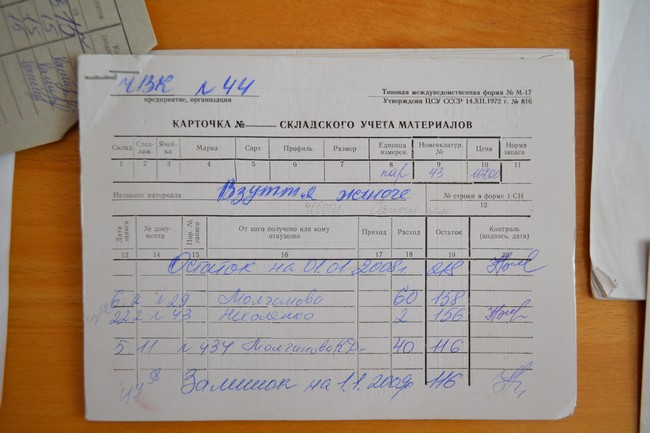 ЧВК №44
предприятие, организация
Типовая междуведомственная форма № М-17
Утверждена ЦСУ СССР 14.XII.1972 г. № 816
КАРТОЧКА № СКЛАДСКОГО УЧЕТА МАТЕРИАЛОВ
Склад Стел-лаж Ячей-ка Марка Сорт Профиль Размер Единица измерен. Номенклатур. № Цена Норма запаса
1 2 3 4 5 6 7 8 9 10 11
пар 43
Название материала Взуття жіноче № строки в форме 1-СН
12
Дата записи № доку-мента Пор. № записи От кого получено или кому отпущено Приход Расход Остаток Контроль (подпись, дата)
13 14 15 16 17 18 19
Остаток на 01.01.2008г. 218
6.2 №29 Молчанова 60 158
22.2 №43 Ніколенко 2 156
5 11 №434 40 116
Залишок на 1.1.2009р 116